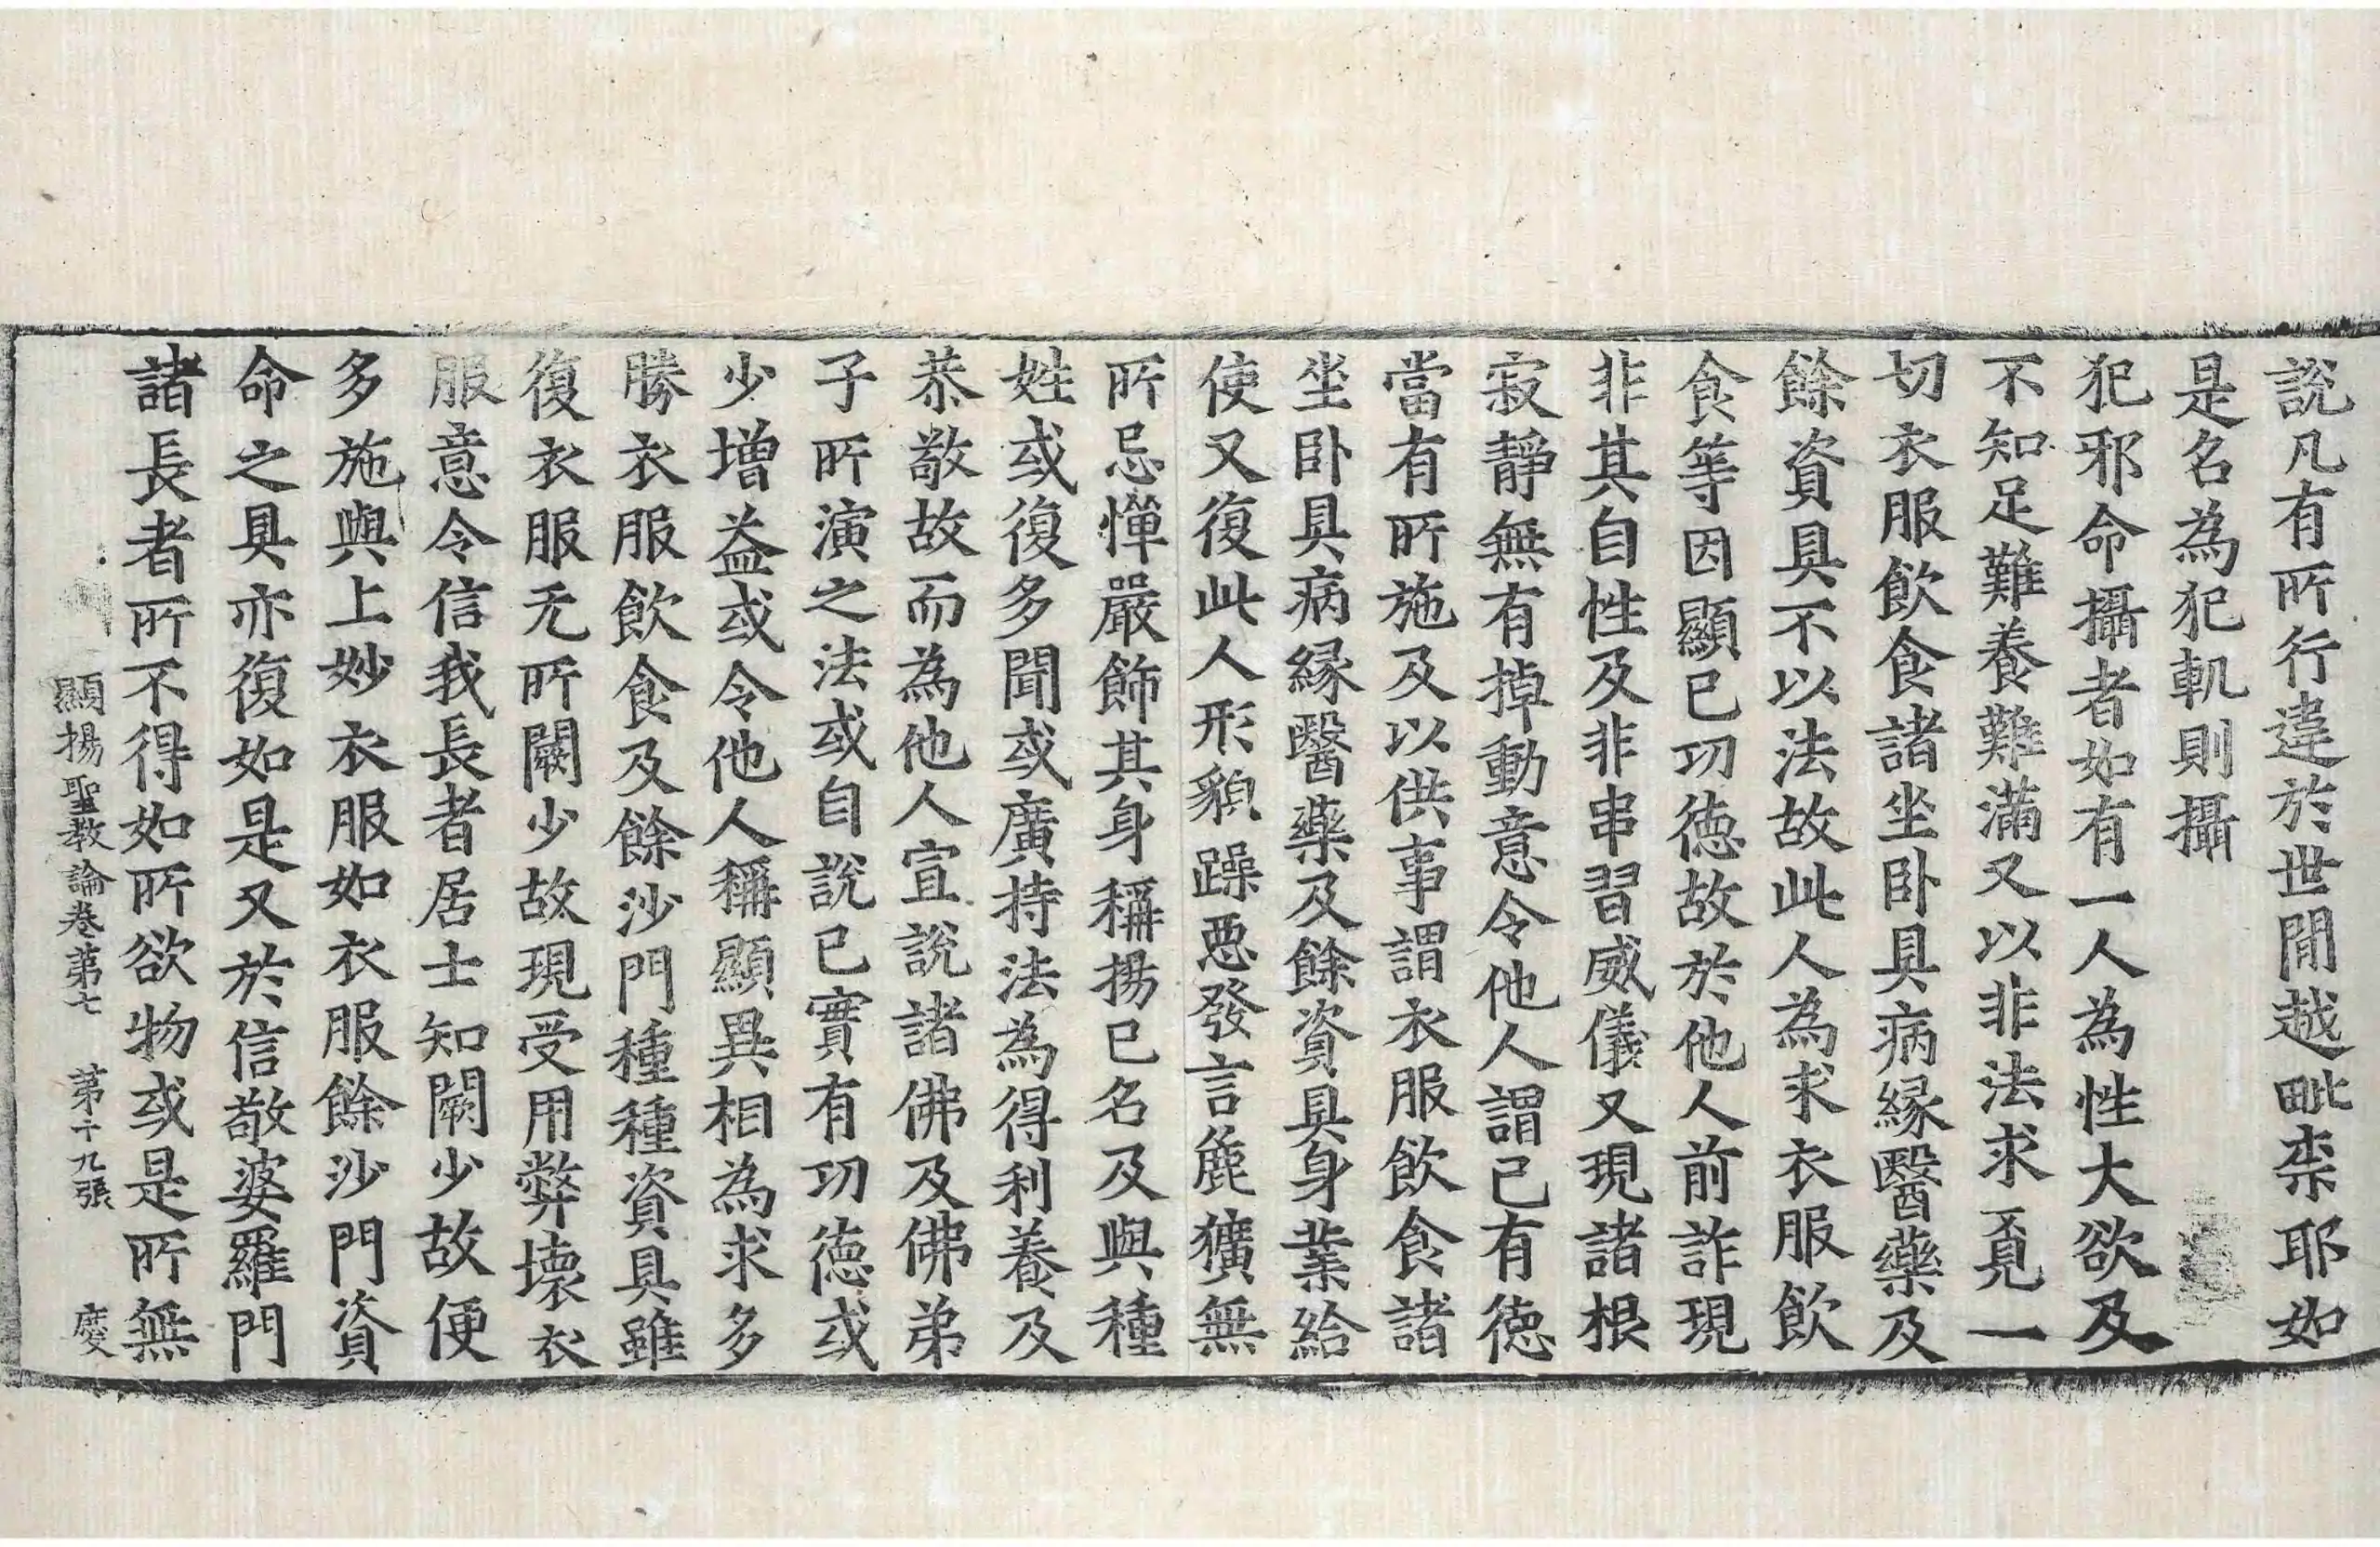 說凡有所行違於世閒越毗柰耶如
是名為犯軌則攝
犯邪命攝者如有一人為性大欲及
不知足難養難滿又以非法求覔一
切衣服飲食諸坐卧具病縁醫藥及
餘資具不以法故此人為求衣服飲
食等因顯已㓛徳故於他人前詐現
非其自性及非串習威儀又現諸根
寂靜無有掉動意令他人謂已有徳
當有所施及以供事謂衣服飲食諸
坐卧具病縁醫藥及餘資具身業給
使又復此人形貌躁惡發言麁獷無
所忌憚嚴飾其身稱揚已名及與種
姓或復多聞或廣持法為得利養及
恭敬故而為他人宣說諸佛及佛弟
子所演之法或自說已實有㓛徳或
少增益或令他人稱顯異相為求多
勝衣服飲食及餘沙門種種資具雖
復衣服无所闕少故現受用弊壞衣
服意令信我長者居士知闕少故便
多施與上妙衣服如衣服餘沙門資
命之具亦復如是又於信敬婆羅門
諸長者所不得如所欲物或是所無
顯揚聖教論卷苐七 苐十九張 慶